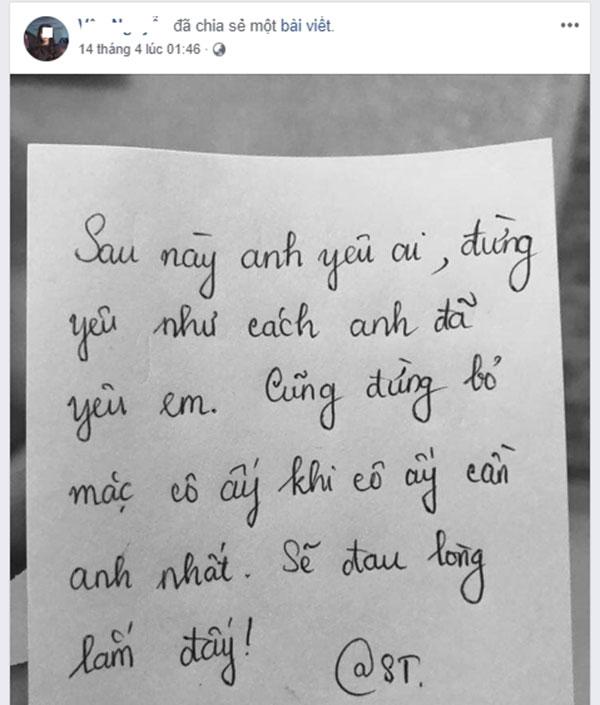 đã chia sẻ một bài viết.
14 tháng 4 lúc 01:46
Sau này anh yêu ai, đừng
yêu như cách anh đã
yêu em. Cũng đừng bỏ
mặc cô ấy khi cô ấy cần
anh nhất. Sẽ đau lòng
lắm đấy!
@ST.